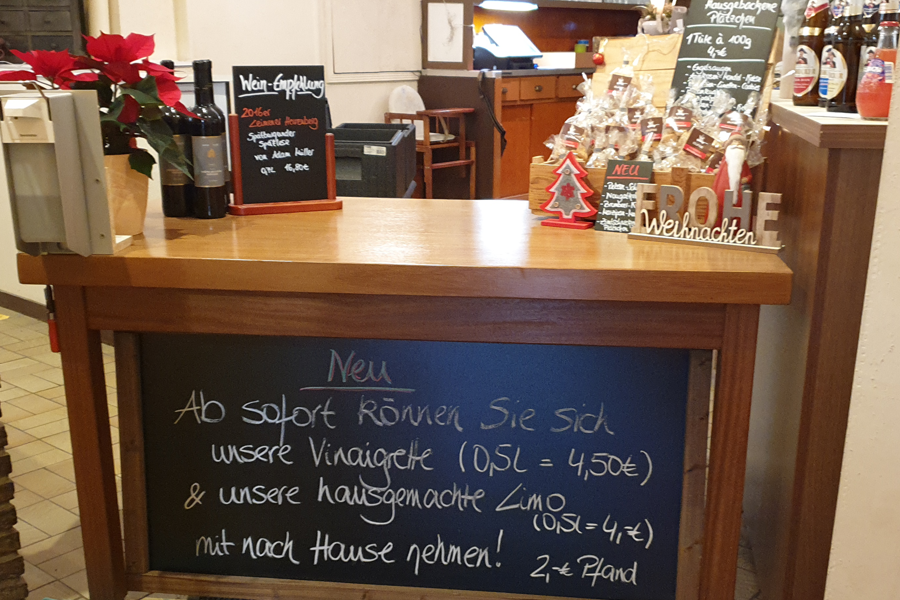 Wein-Empfehlung
2016er
Spätburgunder
Spätlese
von Adam Müller
0,75l 16,80€
Hausgebackene
Plätzchen
1 Tüte à 100g
4,-€
NEU
FROHE
Weihnachten
Neu
Ab sofort können Sie sich
unsere Vinaigrette (0,5L = 4,50€)
& unsere hausgemachte Limo
(0,5l = 4,-€)
mit nach Hause nehmen!
2,-€ Pfand